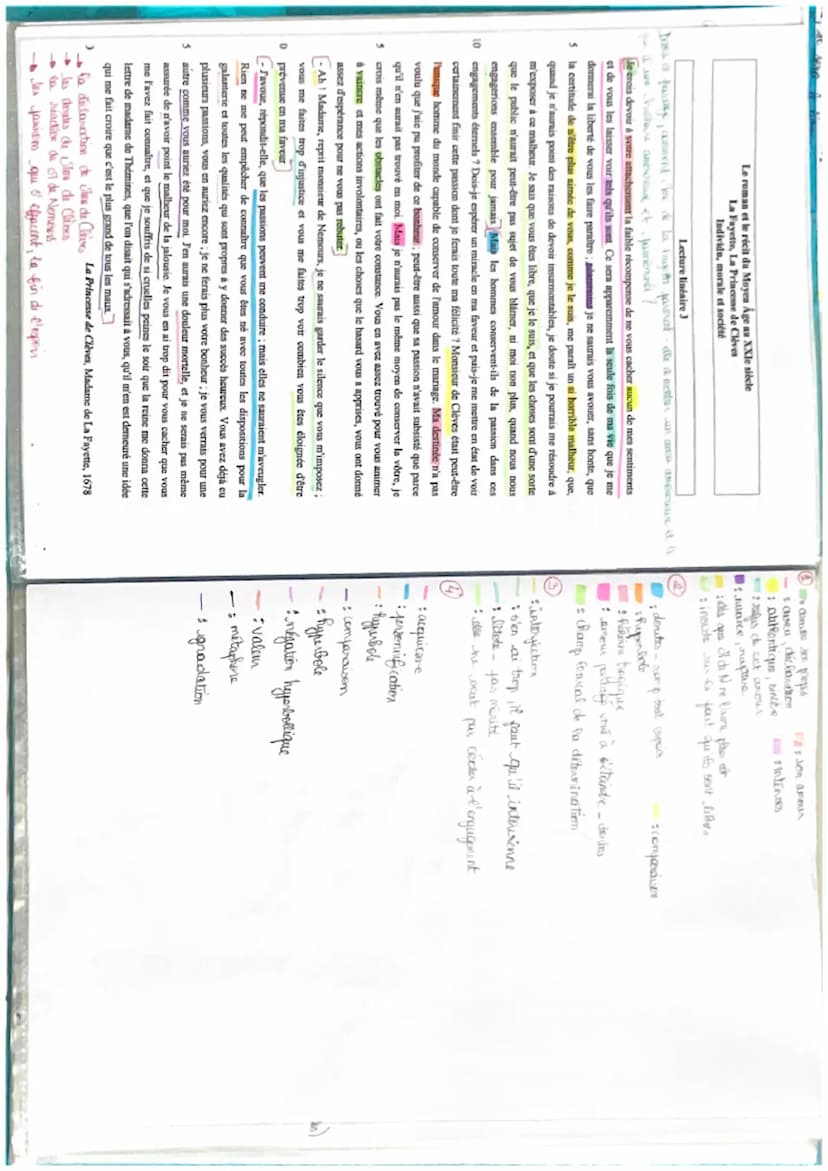 Le roman et le récit du Moyen Âge au XXIe siècle
La Fayette, La Princesse de Clèves
Individu, morale et société
Lecture linéaire 3
Je crois devoir à votre attachement la faible récompense de ne vous cacher aucun de mes sentiments
et de vous les laisser voir tels qu'ils sont. Ce sera apparemment la seule fois de ma vie que je me
donnerai la liberté de vous les faire paraître ; néanmoins je ne saurais vous avouer, sans honte, que
la certitude de n'être plus aimée de vous, comme je le suis, me paraît un si horrible malheur, que,
5 quand je n'aurais point des raisons de devoir insurmontables, je doute si je pourrais me résoudre à
m'exposer à ce malheur. Je sais que vous êtes libre, que je le suis, et que les choses sont d'une sorte
que le public n'aurait peut-être pas sujet de vous blâmer, ni moi non plus, quand nous nous
engagerions ensemble pour jamais. Mais les hommes conservent-ils de la passion dans ces
engagements éternels ? Dois-je espérer un miracle en ma faveur et puis-je me mettre en état de voir
10 certainement finir cette passion dont je ferais toute ma félicité ? Monsieur de Clèves était peut-être
l'unique homme du monde capable de conserver de l'amour dans le mariage. Ma destinée n'a pas
voulu que j'aie pu profiter de ce bonheur ; peut-être aussi que sa passion n'avait subsisté que parce
qu'il n'en aurait pas trouvé en moi. Mais je n'aurais pas le même moyen de conserver la vôtre, je
crois même que les obstacles ont fait votre constance. Vous en avez assez trouvé pour vous animer
5 à vaincre et mes actions involontaires, ou les choses que le hasard vous a apprises, vous ont donné
assez d'espérance pour ne vous pas rebuter.
- Ah ! Madame, reprit monsieur de Nemours, je ne saurais garder le silence que vous m'imposez ;
vous me faites trop d'injustice et vous me faites trop voir combien vous êtes éloignée d'être
prévenue en ma faveur.
0 - J'avoue, répondit-elle, que les passions peuvent me conduire ; mais elles ne sauraient m'aveugler.
Rien ne me peut empêcher de connaître que vous êtes né avec toutes les dispositions pour la
galanterie et toutes les qualités qui sont propres à y donner des succès heureux. Vous avez déjà eu
plusieurs passions, vous en auriez encore ; je ne ferais plus votre bonheur ; je vous verrais pour une
autre comme vous auriez été pour moi. J'en aurais une douleur mortelle, et je ne serais pas même
5 assurée de n'avoir point le malheur de la jalousie. Je vous en ai trop dit pour vous cacher que vous
me l'avez fait connaître, et que je souffris de si cruelles peines le soir que la reine me donna cette
lettre de madame de Thémines, que l'on disait qui s'adressait à vous, qu'il m'en est demeuré une idée
qui me fait croire que c'est le plus grand de tous les maux.
3
La Princesse de Clèves, Madame de La Fayette, 1678
→ la déclaration de Mme de Clèves
→ les doutes de Mme de Clèves
→ la réaction de M de Nemours
→ les passions qui s'effacent, la fin de l'espoir
① 
: son amour
: aveu, déclaration
: pathétique, sincère
: intenses
: cet amour
: nuance, rupture
: insiste sur le fait qu'ils sont libres
②
: doute
: comparaison
: hyperbole
: tragique
: champ lexical de la détermination
③
: interjection
: s'en ai trop, il faut qu'il intervienne
: litote - pas mérité
: elle ne veut pas céder à l'engagement
④
: personnification
: hyperbole
: comparaison
: hyperbole
: négation hyperbolique
: valeur
: métaphore
: gradation